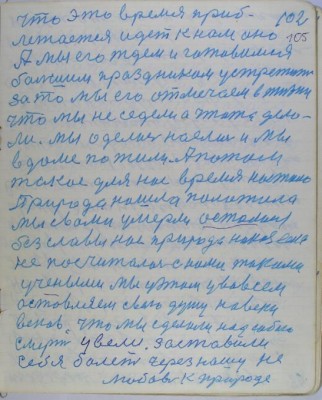 102
105
что это время приб-
лежается идет к нам оно
А мы его ждем и готовимся
большим праздником устретить
за то мы его отмечаем в жизни
что мы не седели а что то дела-
ли. мы оделис наелис и мы
в доме пожили. А потом
тяжое для нас время настало
Природа нашла положила
мы с вами умерли остались
без славы нас природа наказала
не посчиталас с нами такими
учеными мы умом у во всем
оставляем свою душу на веки
веков. что мы сделали над собою
смерт увели. заставили
себя болет через нашу не
любов к природе